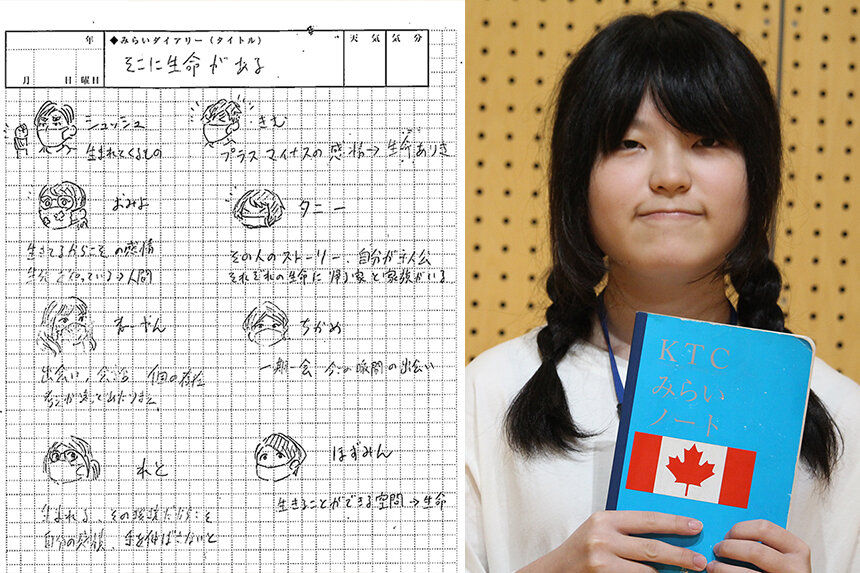 年
◆みらいダイアリー(タイトル)
天気
気分
月 日 曜日
そこに生命がある
シュッシュ
生まれてくるもの
きむ
プラスマイナスの感情→生命ありき
おみよ
生きてるからこその感情
→人間
タニー
その人のストーリー、自分が主人公
それぞれの生命に帰る家と家族がいる
出会い、
ちかめ
一期一会 今この瞬間の出会い
れと
生まれる、その
自分の感情、
ほずみん
生きることができる空間→生命
KTC
みらい
ノート